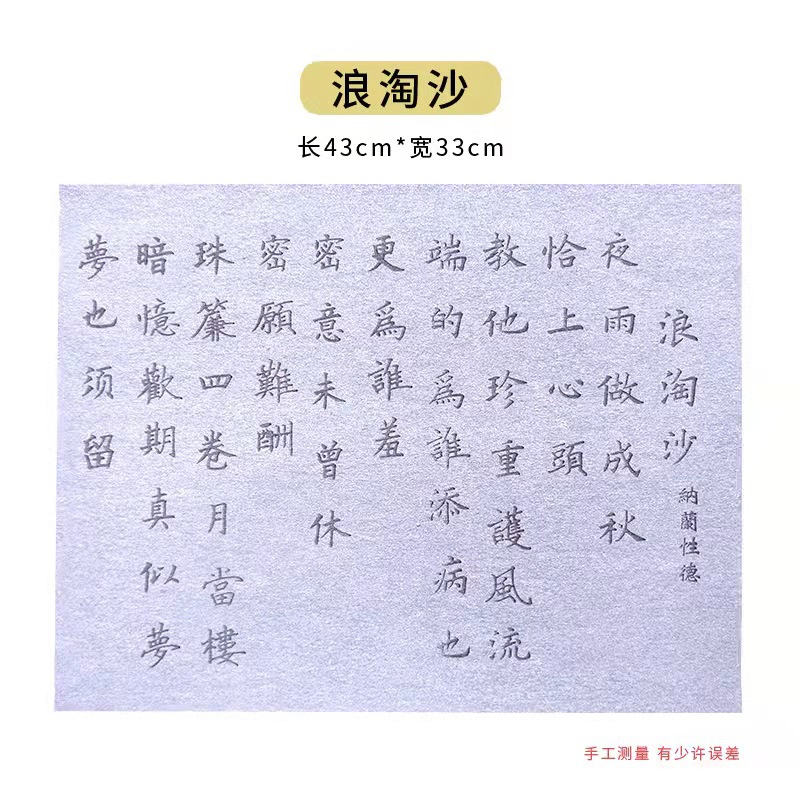 浪淘沙
长43cm*宽33cm
浪淘沙 納蘭性德
夜雨做成秋
恰上心頭
教他珍重護風流
端的爲誰添病也
更爲誰羞
密意未曾休
密願難酬
珠簾四卷月當樓
暗憶歡期真似夢
夢也须留
手工测量 有少许误差